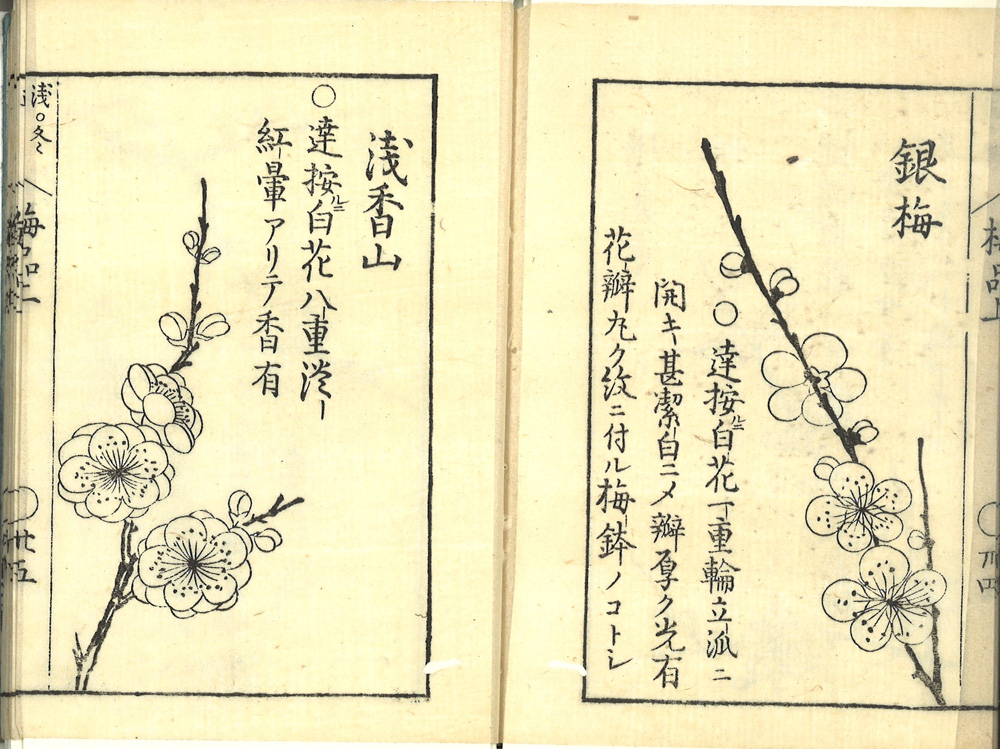 銀梅
○達按ルニ白花一重輪立派ニ
開キ甚潔白ニメ瓣厚ク光有
花瓣丸ク紋ニ付ル梅鉢ノコトシ
浅香山
○達按ルニ白花八重淡ー
紅暈アリテ香有
浅○冬〻
梅品上
廿五